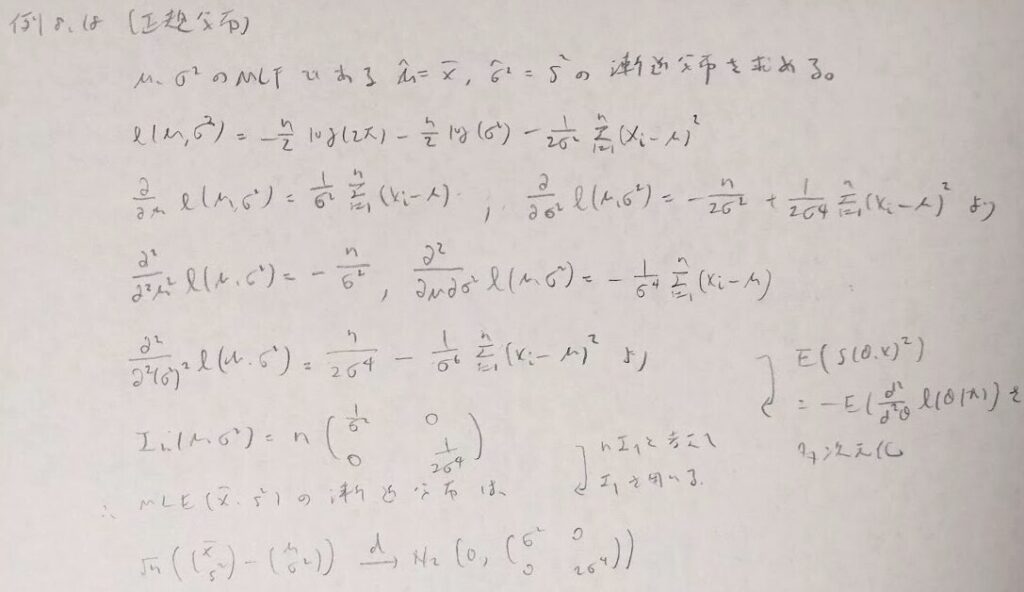 例8.18 (正規分布)
μ, σ² の MLE である μ̂ = x̄, σ̂² = s² の漸近分布を求める。
ℓ(μ, σ²) = -n/2 log(2π) - n/2 log(σ²) - 1/2σ² Σ_{i=1}^n (x_i - μ)²
∂/∂μ ℓ(μ, σ²) = 1/σ² Σ_{i=1}^n (x_i - μ), ∂/∂σ² ℓ(μ, σ²) = -n/2σ² + 1/2σ⁴ Σ_{i=1}^n (x_i - μ)² より
∂²/∂²μ² ℓ(μ, σ²) = -n/σ², ∂²/∂μ∂σ² ℓ(μ, σ²) = -1/σ⁴ Σ_{i=1}^n (x_i - μ)
∂²/∂²(σ²)² ℓ(μ, σ²) = n/2σ⁴ - 1/σ⁶ Σ_{i=1}^n (x_i - μ)² より
E(S(θ, x)²)
= -E(d²/d²θ ℓ(θ|x)) を
次元化
I_n(μ, σ²) = n ( 1/σ² 0 ; 0 1/2σ⁴ )
nI₁と考えて
I₁を用いる.
∴ MLE (x̄, s²) の漸近分布は、
√n ((x̄ ; s²) - (μ ; σ²)) →d N₂ (0, (σ² 0 ; 0 2σ⁴))